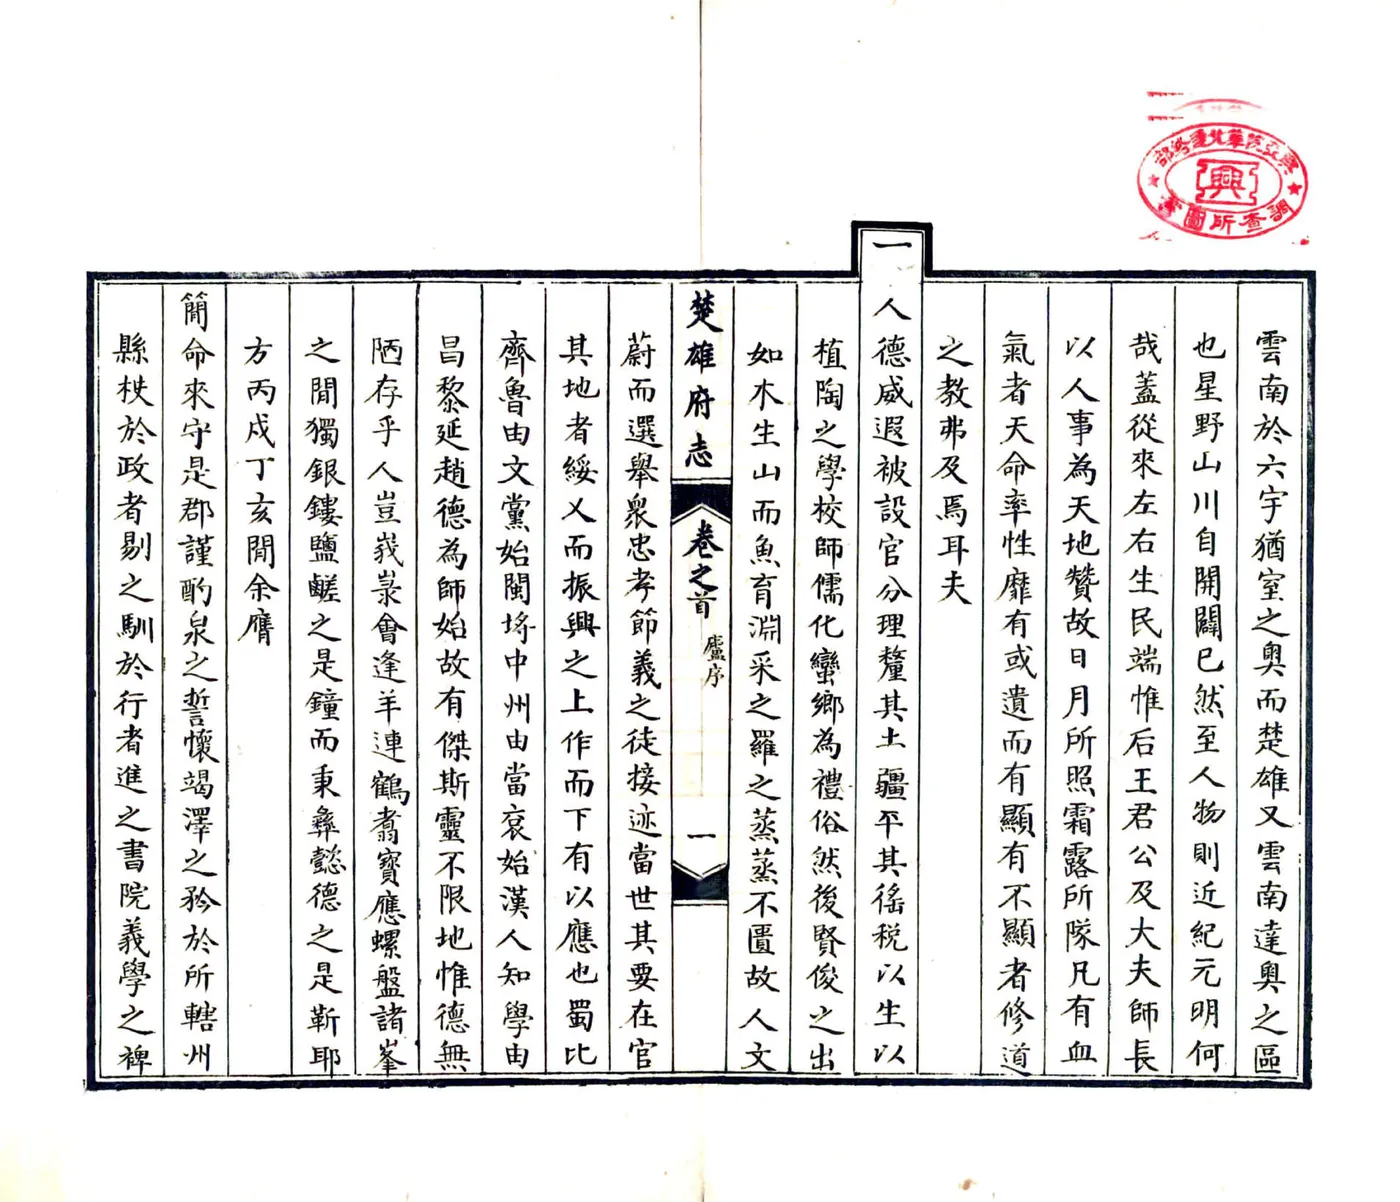 興亞院華北連絡部
興
調查所圖書
雲南於六宇猶室之奧而楚雄又雲南達奧之區
也星野山川自開闢已然至人物則近紀元明何
哉蓋從來左右生民端惟后王君公及大夫師長
以人事為天地贊故日月所照霜露所隊凡有血
氣者天命率性靡有或遺而有顯有不顯者修道
之教弗及焉耳夫
一人德威遐被設官分理釐其土疆平其徭税以生以
植陶之學校師儒化蠻鄉為禮俗然後賢俊之出
如木生山而魚育淵采之羅之蒸蒸不匱故人文
楚雄府志 卷之首 廬序 一
蔚而選舉衆忠孝節義之徒接迹當世其要在官
其地者綏乂而振興之上作而下有以應也蜀比
齊魯由文黨始閩埓中州由當袞始漢人知學由
昌黎延趙德為師始故有傑斯靈不限地惟德無
陋存乎人豈峩彔會逢羊連鶴翥寶應螺盤諸峯
之閒獨銀鏤鹽鹺之是鐘而秉彝懿德之是靳耶
方丙戍丁亥閒余膺
簡命來守是郡謹酌泉之誓懷竭澤之矜於所轄州
縣杖於政者剔之馴於行者進之書院義學之裨